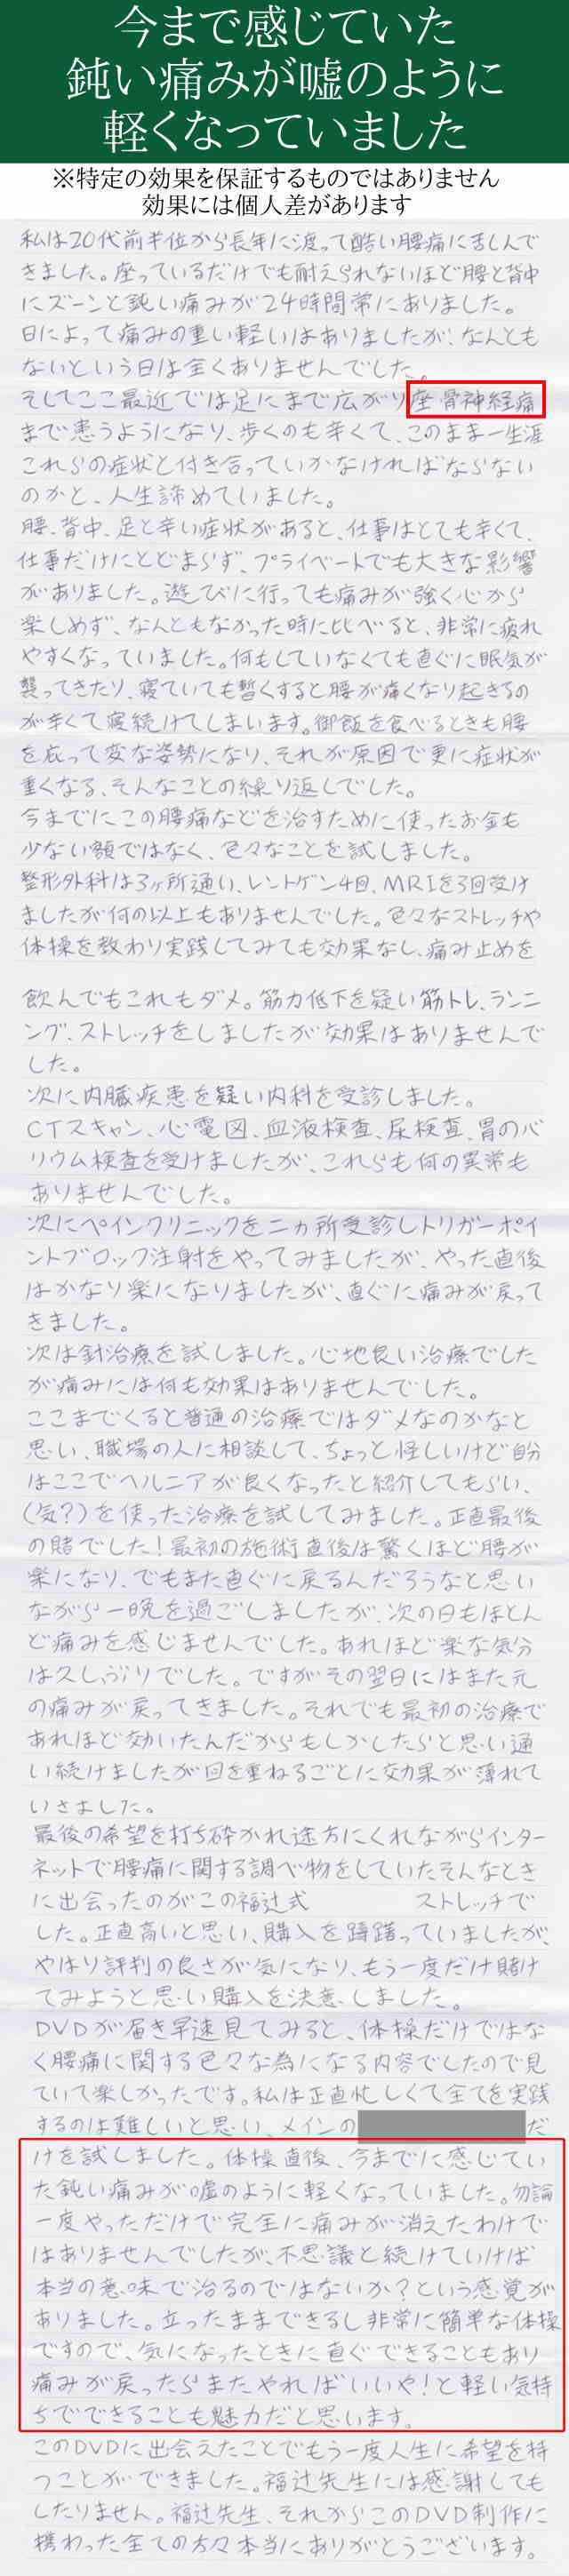 今まで感じていた
鈍い痛みが嘘のように
軽くなっていました
※特定の効果を保証するものではありません
効果には個人差があります
私は20代前半位から長年に渡って酷い腰痛に苦しんで
きました。座っているだけでも耐えられないほど腰と背中
にズーンと鈍い痛みが24時間常にありました。
日によって痛みの重い軽いはありましたが、なんとも
ないという日は全くありませんでした。
そしてここ最近では足にまで広がり座骨神経痛
まで患うようになり、歩くのも辛くて、このまま一生涯
これらの症状と付き合っていかなければならない
のかと、人生諦めていました。
腰、背中、足と辛い症状があると、仕事はとても辛くて、
仕事だけにとどまらず、プライベートでも大きな影響
がありました。遊びに行っても痛みが強く心から
楽しめず、なんともなかった時に比べると、非常に疲れ
やすくなっていました。何もしていなくても直ぐに眠気が
襲ってきたり、寝ていても暫くすると腰が痛くなり起きるの
が辛くて寝続けてしまいます。御飯を食べるときも腰
を庇って変な姿勢になり、それが原因で更に症状が
重くなる、そんなことの繰り返しでした。
今までにこの腰痛などを治すために使ったお金も
少ない額ではなく、色々なことを試しました。
整形外科は3ヶ所通い、レントゲン4回、MRIを3回受け
ましたが何の以上もありませんでした。色々なストレッチや
体操を教わり実践してみても効果なし、痛み止めを
飲んでもこれもダメ。筋力低下を疑い筋トレ、ランニ
ング、ストレッチをしましたが効果はありませんで
した。
次に内臓疾患を疑い内科を受診しました。
CTスキャン、心電図、血液検査、尿検査、胃のバ
リウム検査を受けましたが、これらも何の異常も
ありませんでした。
次にペインクリニックを二ヵ所受診しトリガーポイ
ントブロック注射をやってみましたが、やった直後
はかなり楽になりましたが、直ぐに痛みが戻って
きました。
次は針治療を試しました。心地良い治療でした
が痛みには何も効果はありませんでした。
ここまでくると普通の治療ではダメなのかなと
思い、職場の人に相談して、ちょっと怪しいけど自分
はここでヘルニアが良くなったと紹介してもらい、
(気?)を使った治療を試してみました。正直最後
の賭でした!最初の施術直後は驚くほど腰が
楽になり、でもまた直ぐに戻るんだろうなと思い
ながら一晩を過ごしましたが、次の日もほとん
ど痛みを感じませんでした。あれほど楽な気分
は久しぶりでした。ですがその翌日にはまた元
の痛みが戻ってきました。それでも最初の治療で
あれほど効いたんだからもしかしたらと思い通
い続けましたが回を重ねるごとに効果が薄れて
いきました。
最後の希望を打ち砕かれ途方にくれながらインター
ネットで腰痛に関する調べ物をしていたそんなとき
に出会ったのがこの福辻式 ストレッチで
した。正直高いと思い、購入を躊躇っていましたが、
やはり評判の良さが気になり、もう一度だけ賭け
てみようと思い購入を決意しました。
DVDが届き早速見てみると、体操だけではな
く腰痛に関する色々な為になる内容でしたので見
ていて楽しかったです。私は正直忙しくて全てを実践
するのは難しいと思い、メインの だ
けを試しました。体操直後、今までに感じてい
た鈍い痛みが嘘のように軽くなっていました。勿論
一度やっただけで完全に痛みが消えたわけで
はありませんでしたが、不思議と続けていけば
本当の意味で治るのではないか?という感覚が
ありました。立ったままできるし非常に簡単な体操
ですので、気になったときに直ぐできることもあり
痛みが戻ったらまたやればいいや!と軽い気持
ちでできることも魅力だと思います。
このDVDに出会えたことでもう一度人生に希望を持
つことができました。福辻先生には感謝しても
したりません。福辻先生、それからこのDVD制作に
携わった全ての方々本当にありがとうございます。